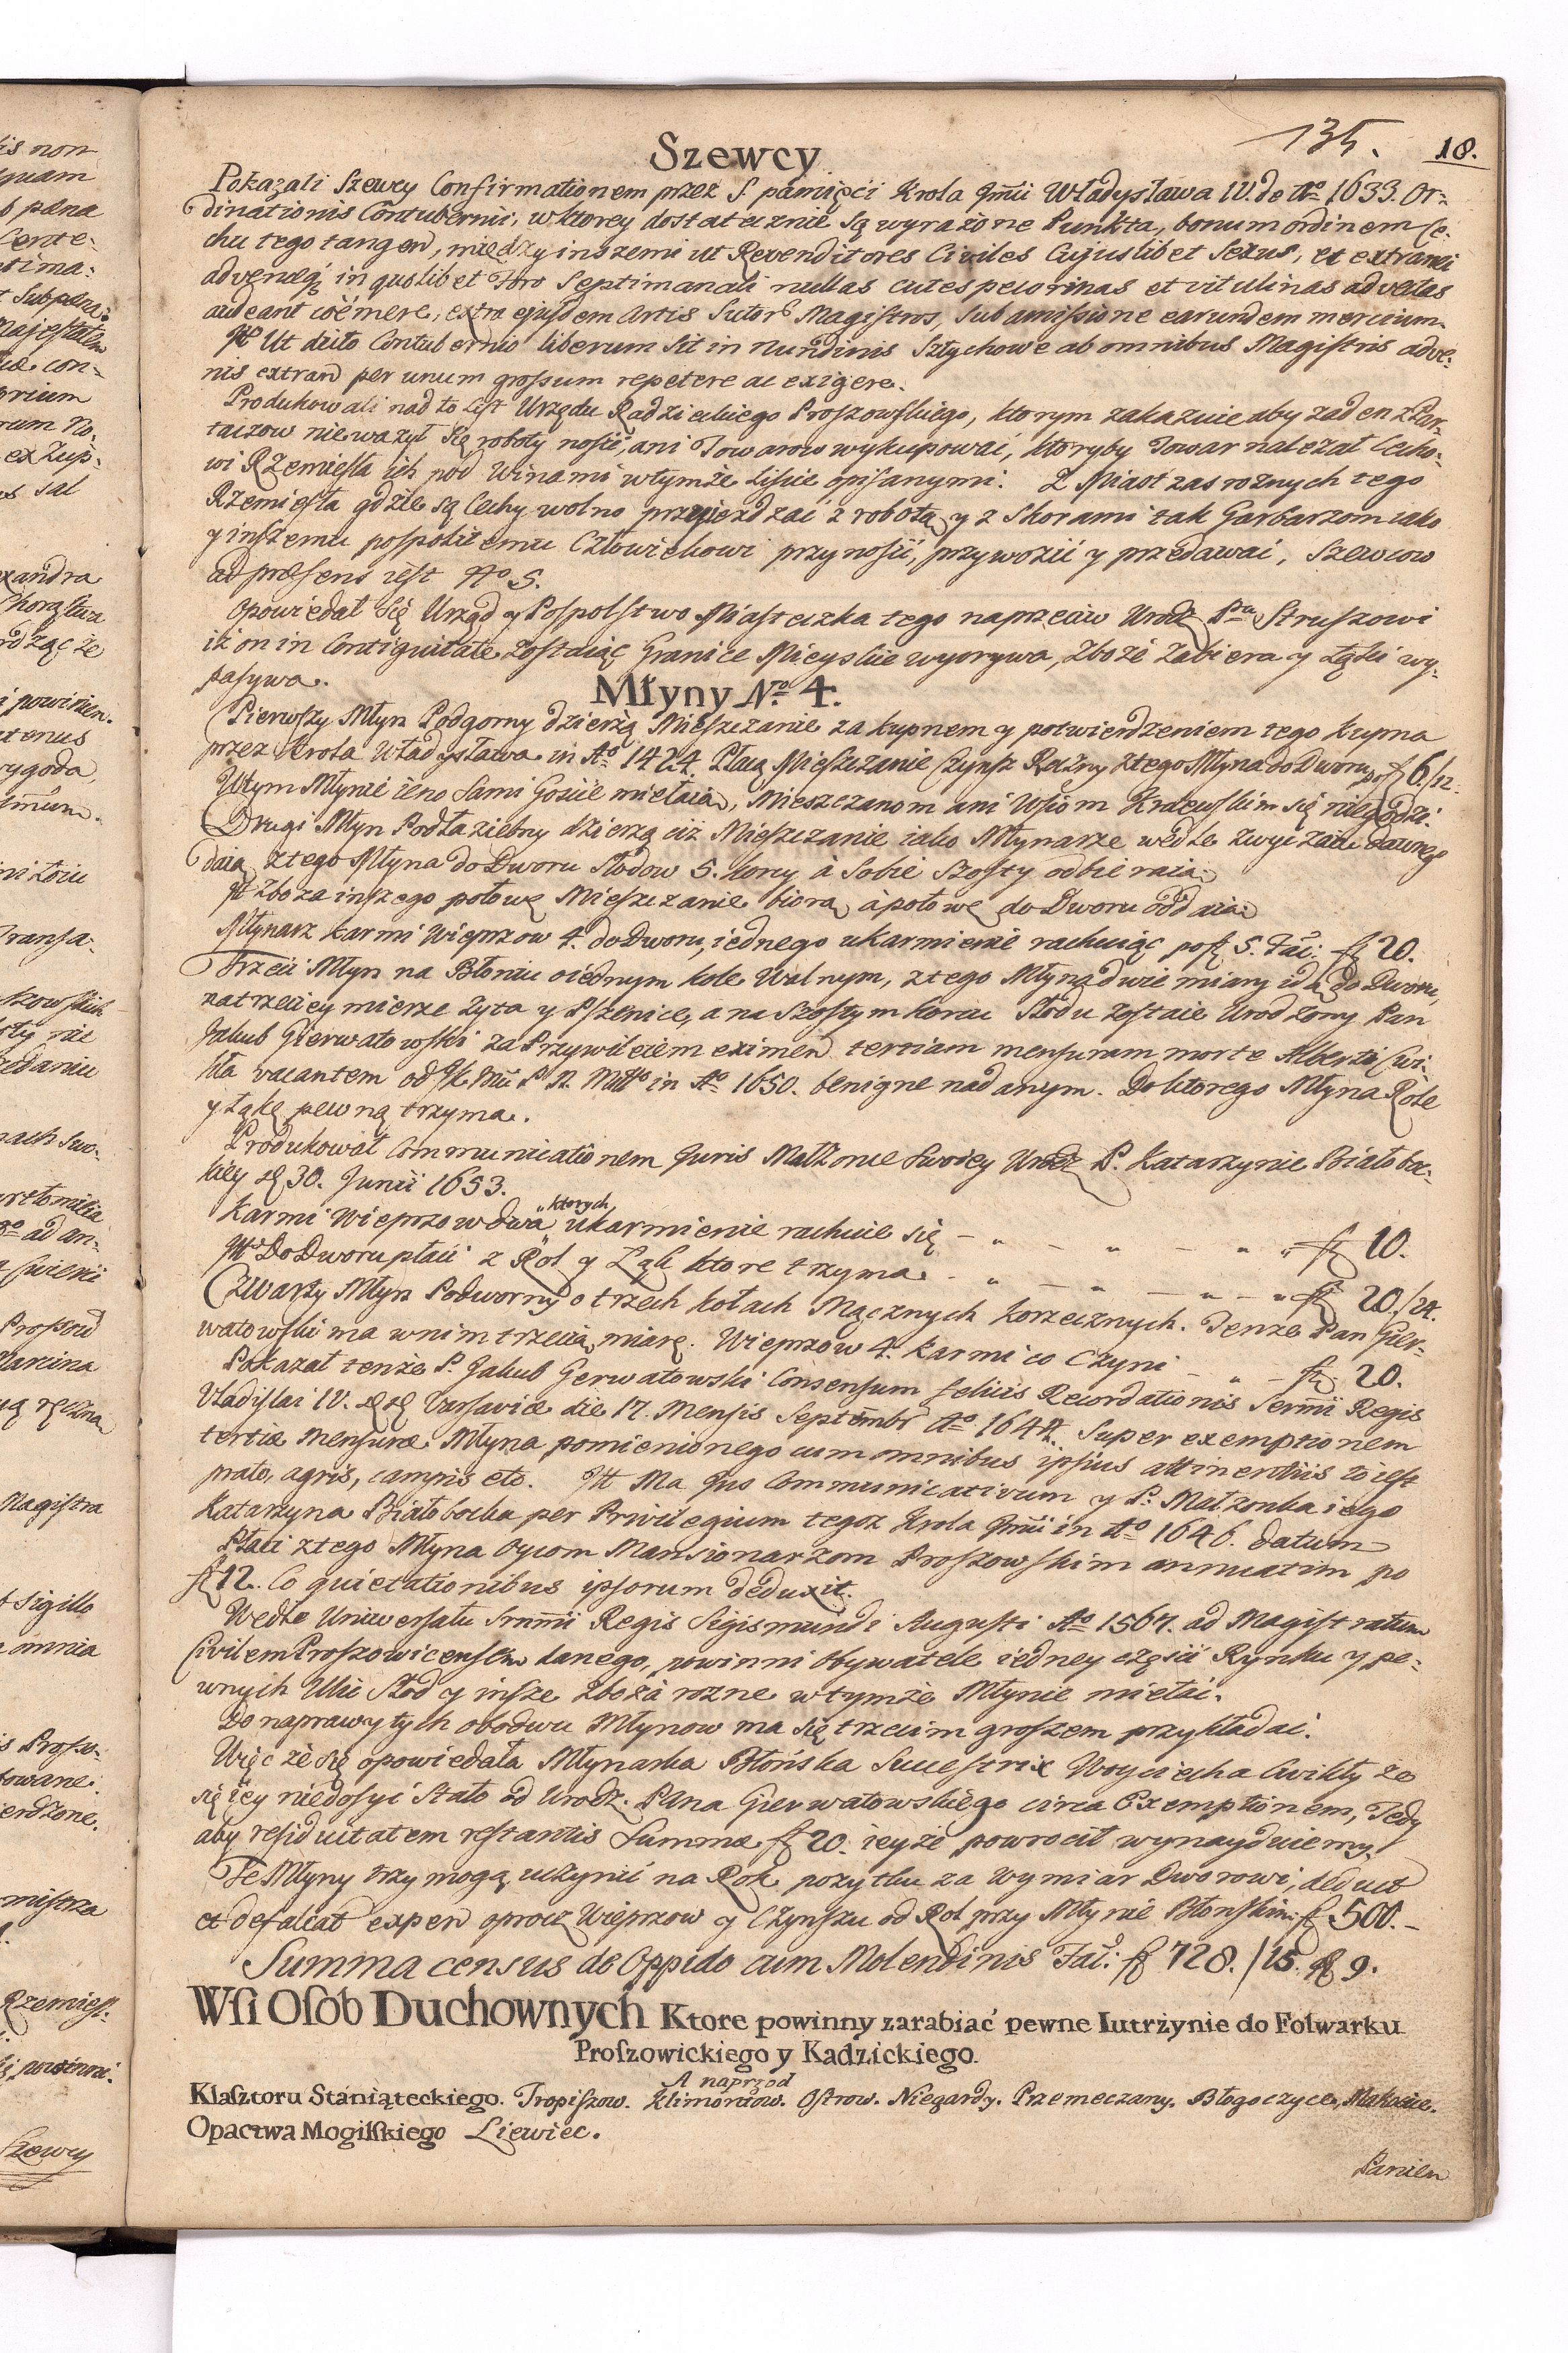 135. 18.
Szewcy
Pokazali Szewcy Confirmationem przez S pamięći Krola Jmći Władysława IV. de Aº 1633. Or-
dinationis Contubernii, w ktorey dostatecznie są wyrażone Punkta, bonum ordinem Ce-
chu tego tangen, między inszemi ut Revenditores Civiles Cujuslibet Sexus, et extranei
advenæq in quolibet Foro Septimanali nullas cutes pecorinas et vitulinas advectas
audeant coemere, extra ejusdem Artis Sutor Magistros, sub amissione earundem mercium.
It Ut dicto Contubernio liberum sit in Nundinis Sztychowe ab omnibus Magistris adve-
nis extran per unum grossum repetere ac exigere.
Produkowali nad to List Urzędu Radzieckiego Proszowskiego, ktorym zakazuie aby zaden z Par-
taczow nieważył się roboty nosić, ani Towarow wykupować, ktoryby Towar należał Cecho-
wi Rzemięsła ich pod Winami w tymże Liście opisanymi. Z Miast zas roznych tego
Rzemięsła gdzie są Cechy wolno przyjezdzać z robotą y z Skorami tak Garbarzom iako
y inszemu pospolitemu Człowiekowi przynosić, przywozić y przedawać, Szewcow
ad præsens iest Nº 5.
Opowiedał się Urząd y Pospolstwo Miasteczka tego naprzeciw Urodz Pu Struszowi
iż on in Contiguitate zostaiąc Granice Mieyskie wyorywa, Zboże Zabiera y Łąki wy-
pasywa.
Młyny Nº 4.
Pierwszy Młyn Podgorny dzierżą Mieszczanie za kupnem y potwierdzeniem tego kupna
przez Krola Władysława in Aº 1424. Płacą Mieszczanie Czynsz Roczny z tego Młyna do Dworu po f 6/12.
W tym Młynie ieno Sami Goście mielaią, Mieszczanom ani Wsiom Krolewskim się niegodzi.
Drugi Młyn Podłaziebny dzierżą ciż Mieszczanie iako Młynarze wedle zwyczaiu dawnego
daią z tego Młyna do Dworu Słodow 5. Korcy à Sobie Szosty odbieraią
It Zboza inszego połowę Mieszczanie biorą à połowę do Dworu oddaią
Młynarz karmi Wieprzow 4. do Dworu, iednego ukarmienie rachuiąc po f 5. Fac: f 20.
Trzeci Młyn na Błoniu o iednym kole Walnym, z tego Młyna dwie miary idą do Dworu,
na trzeciey mierze Żyta y Pszenice, a na Szostym korcu Słodu zostaie Urodzony Pan
Jakub Gierwatowski za Przywileiem eximen tertiam mensuram morte Alberti Cwi-
kła vacantem od JKMći P. N. Mttº in Aº 1650. benigne nadanym. Do ktorego Młyna Role
y Łąkę pewną trzyma.
Produkował Communicationem Juris Małżonce Swoiey Urodz P. Katarzynie Białobo-
kiey 30. Junii 1653.
Karmi Wieprzow dwa ktorych ukarmienie rachuie się - " - " - " f 10.
Itº Do Dworu płaci z Rol y Łąk ktore trzyma - " - " - " - " f 20./24.
Czwarty Młyn Podworny o trzech kołach Mącznych korzecznych. Tenze Pan Gier-
watowski ma w nim trzecią miarę. Wieprzow 4. karmi co Czyni - " - f 20.
Pokazał tenże P. Jakub Gerwatowski Consensum felicis Recordationis Sermi Regis
Vladislai IV. Varsaviæ die 17. Mensis Septembr Aº 1647. Super exemptionem
tertiæ Mensuræ Młyna pomienionego cum omnibus ipsius attinentiis to iest
prato, agris, campis etc. It Ma Jus Communicativum y P. Małzonka iego
Katarzyna Białobocka per Privilegium tegoz Krola Jmći in Aº 1646. datum
Płaci z tego Młyna Oycom Mansionarzom Proszowskim annuatim po
f 12. Co quietationibus ipsorum deduxit.
Wedle Uniwersału Srmi Regis Sigismundi Augusti Aº 1567. ad Magistratum
Civilem Proszowicensem danego, powinni Obywatele iedney części Rynku y pe-
wnych Ulic Słod y insze Zboża rozne w tymże Młynie mielać.
Do naprawy tych obodwu Młynow ma się trzecim groszem przykładać.
Więc że się opowiedała Młynarka Błońska Successtrix Woyciecha Cwikły że
się iey niedosyć Stało od Urodz. Pana Gierwatowskiego circa Exemptionem, Tedy
aby residuitatem restantis Summæ f 20. ieyże powrocił wynayduiemy.
Te Młyny trzy mogą uczynić na Rok pozytku za Wymiar Dworowi, deduct
et defalcat expen oprocz Wieprzow y Czynszu od Rol przy Młynie Błonskim f 500.-
Summa census de Oppido cum Molendinis Fac: f 728./15. 9.
Wsi Osob Duchownych Ktore powinny zarabiać pewne Iutrżynie do Folwarku
Proszowickiego y Kadzickiego.
A naprzod
Klasztoru Staniąteckiego. Tropiszow. Klimontow. Ostrow. Niegardy. Przemeczany. Błogoczyce, Makocice.
Opactwa Mogilskiego Liewiec.
Panien